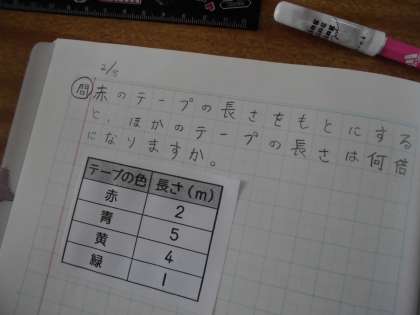 2/5
問 赤のテープの長さをもとにする
と、ほかのテープの長さは何倍
になりますか。
テープの色 長さ(m)
赤 2
青 5
黄 4
緑 1